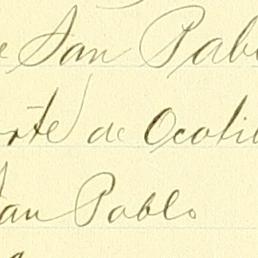 e San Pabl
orte de Ocotil
San Pablo